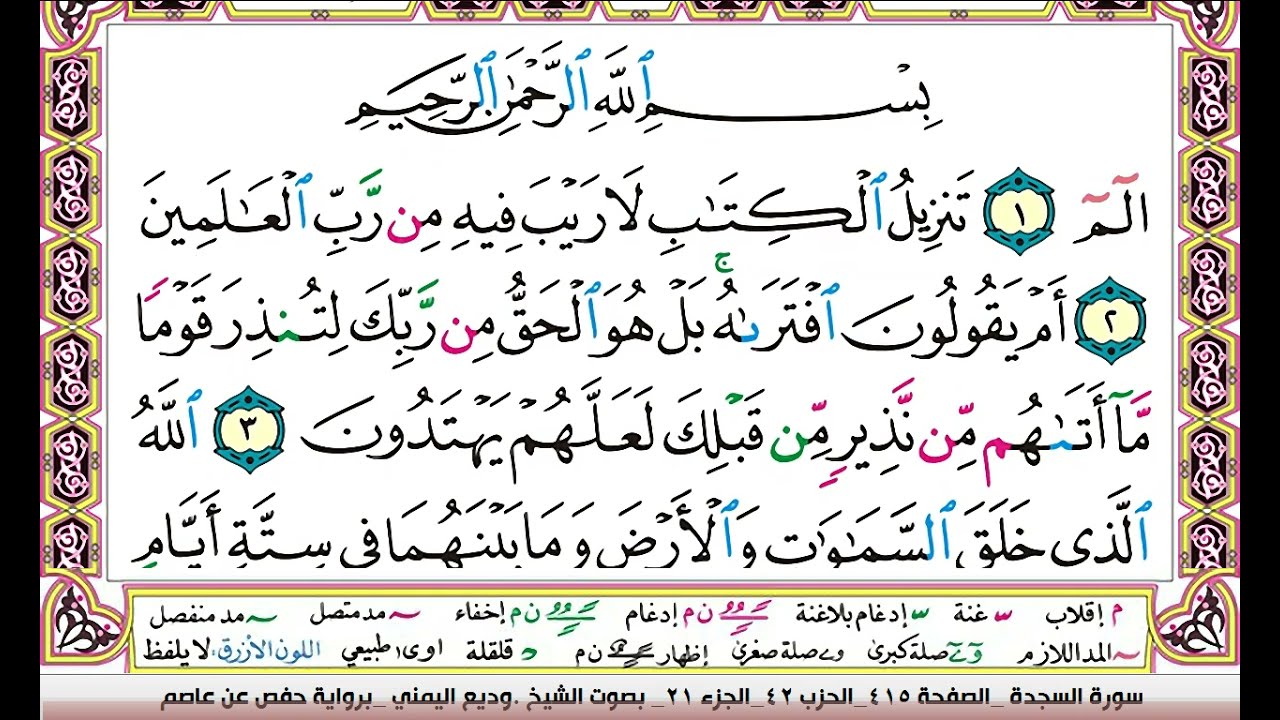 بِسْمِ ٱللَّهِ ٱلرَّحْمَٰنِ ٱلرَّحِيمِ
الٓمٓ ١ تَنزِيلُ ٱلْكِتَٰبِ لَا رَيْبَ فِيهِ مِن رَّبِّ ٱلْعَٰلَمِينَ
٢ أَمْ يَقُولُونَ ٱفْتَرَىٰهُ ۚ بَلْ هُوَ ٱلْحَقُّ مِن رَّبِّكَ لِتُنذِرَ قَوْمًا
مَّآ أَتَىٰهُم مِّن نَّذِيرٍ مِّن قَبْلِكَ لَعَلَّهُمْ يَهْتَدُونَ ٣ ٱللَّهُ
ٱلَّذِى خَلَقَ ٱلسَّمَٰوَٰتِ وَٱلْأَرْضَ وَمَا بَيْنَهُمَا فِى سِتَّةِ أَيَّامٍ
م إقلاب غنة إدغام بلاغنة ن م إدغام ن م إخفاء مد متصل مد منفصل
المد اللازم صلة كبرى وے صلة صغرى إظهار ن م د قلقلة اوى طبيعي اللون الأزرق، لا يلفظ
سورة السجدة _الصفحة ٤١٥_الحزب ٤٢_الجزء ٢١_ بصوت الشيخ .وديع اليمني _برواية حفص عن عاصم